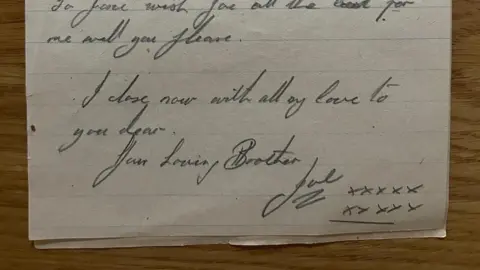 wish you all the best for
me will you please.
I close now with all my love to
you dear.
Your Loving Brother
Joe xxxxx
xxxxx